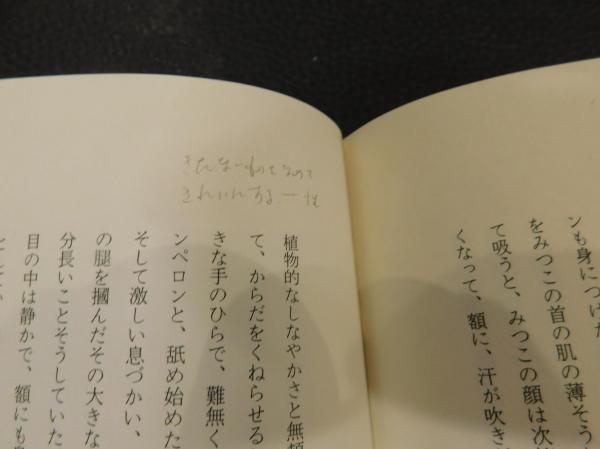 ンも身につけた
をみつこの首の肌の薄そう
て吸うと、みつこの顔は次第
くなって、額に、汗が吹き
きたないものをなめて
きれいにする。― 性
植物的なしなやかさと無頼
て、からだをくねらせる
きな手のひらで、難無く
ンペロンと、舐め始めた
そして激しい息づかい、
の腿を摑んだその大きな
分長いことそうしていた
目の中は静かで、額にも